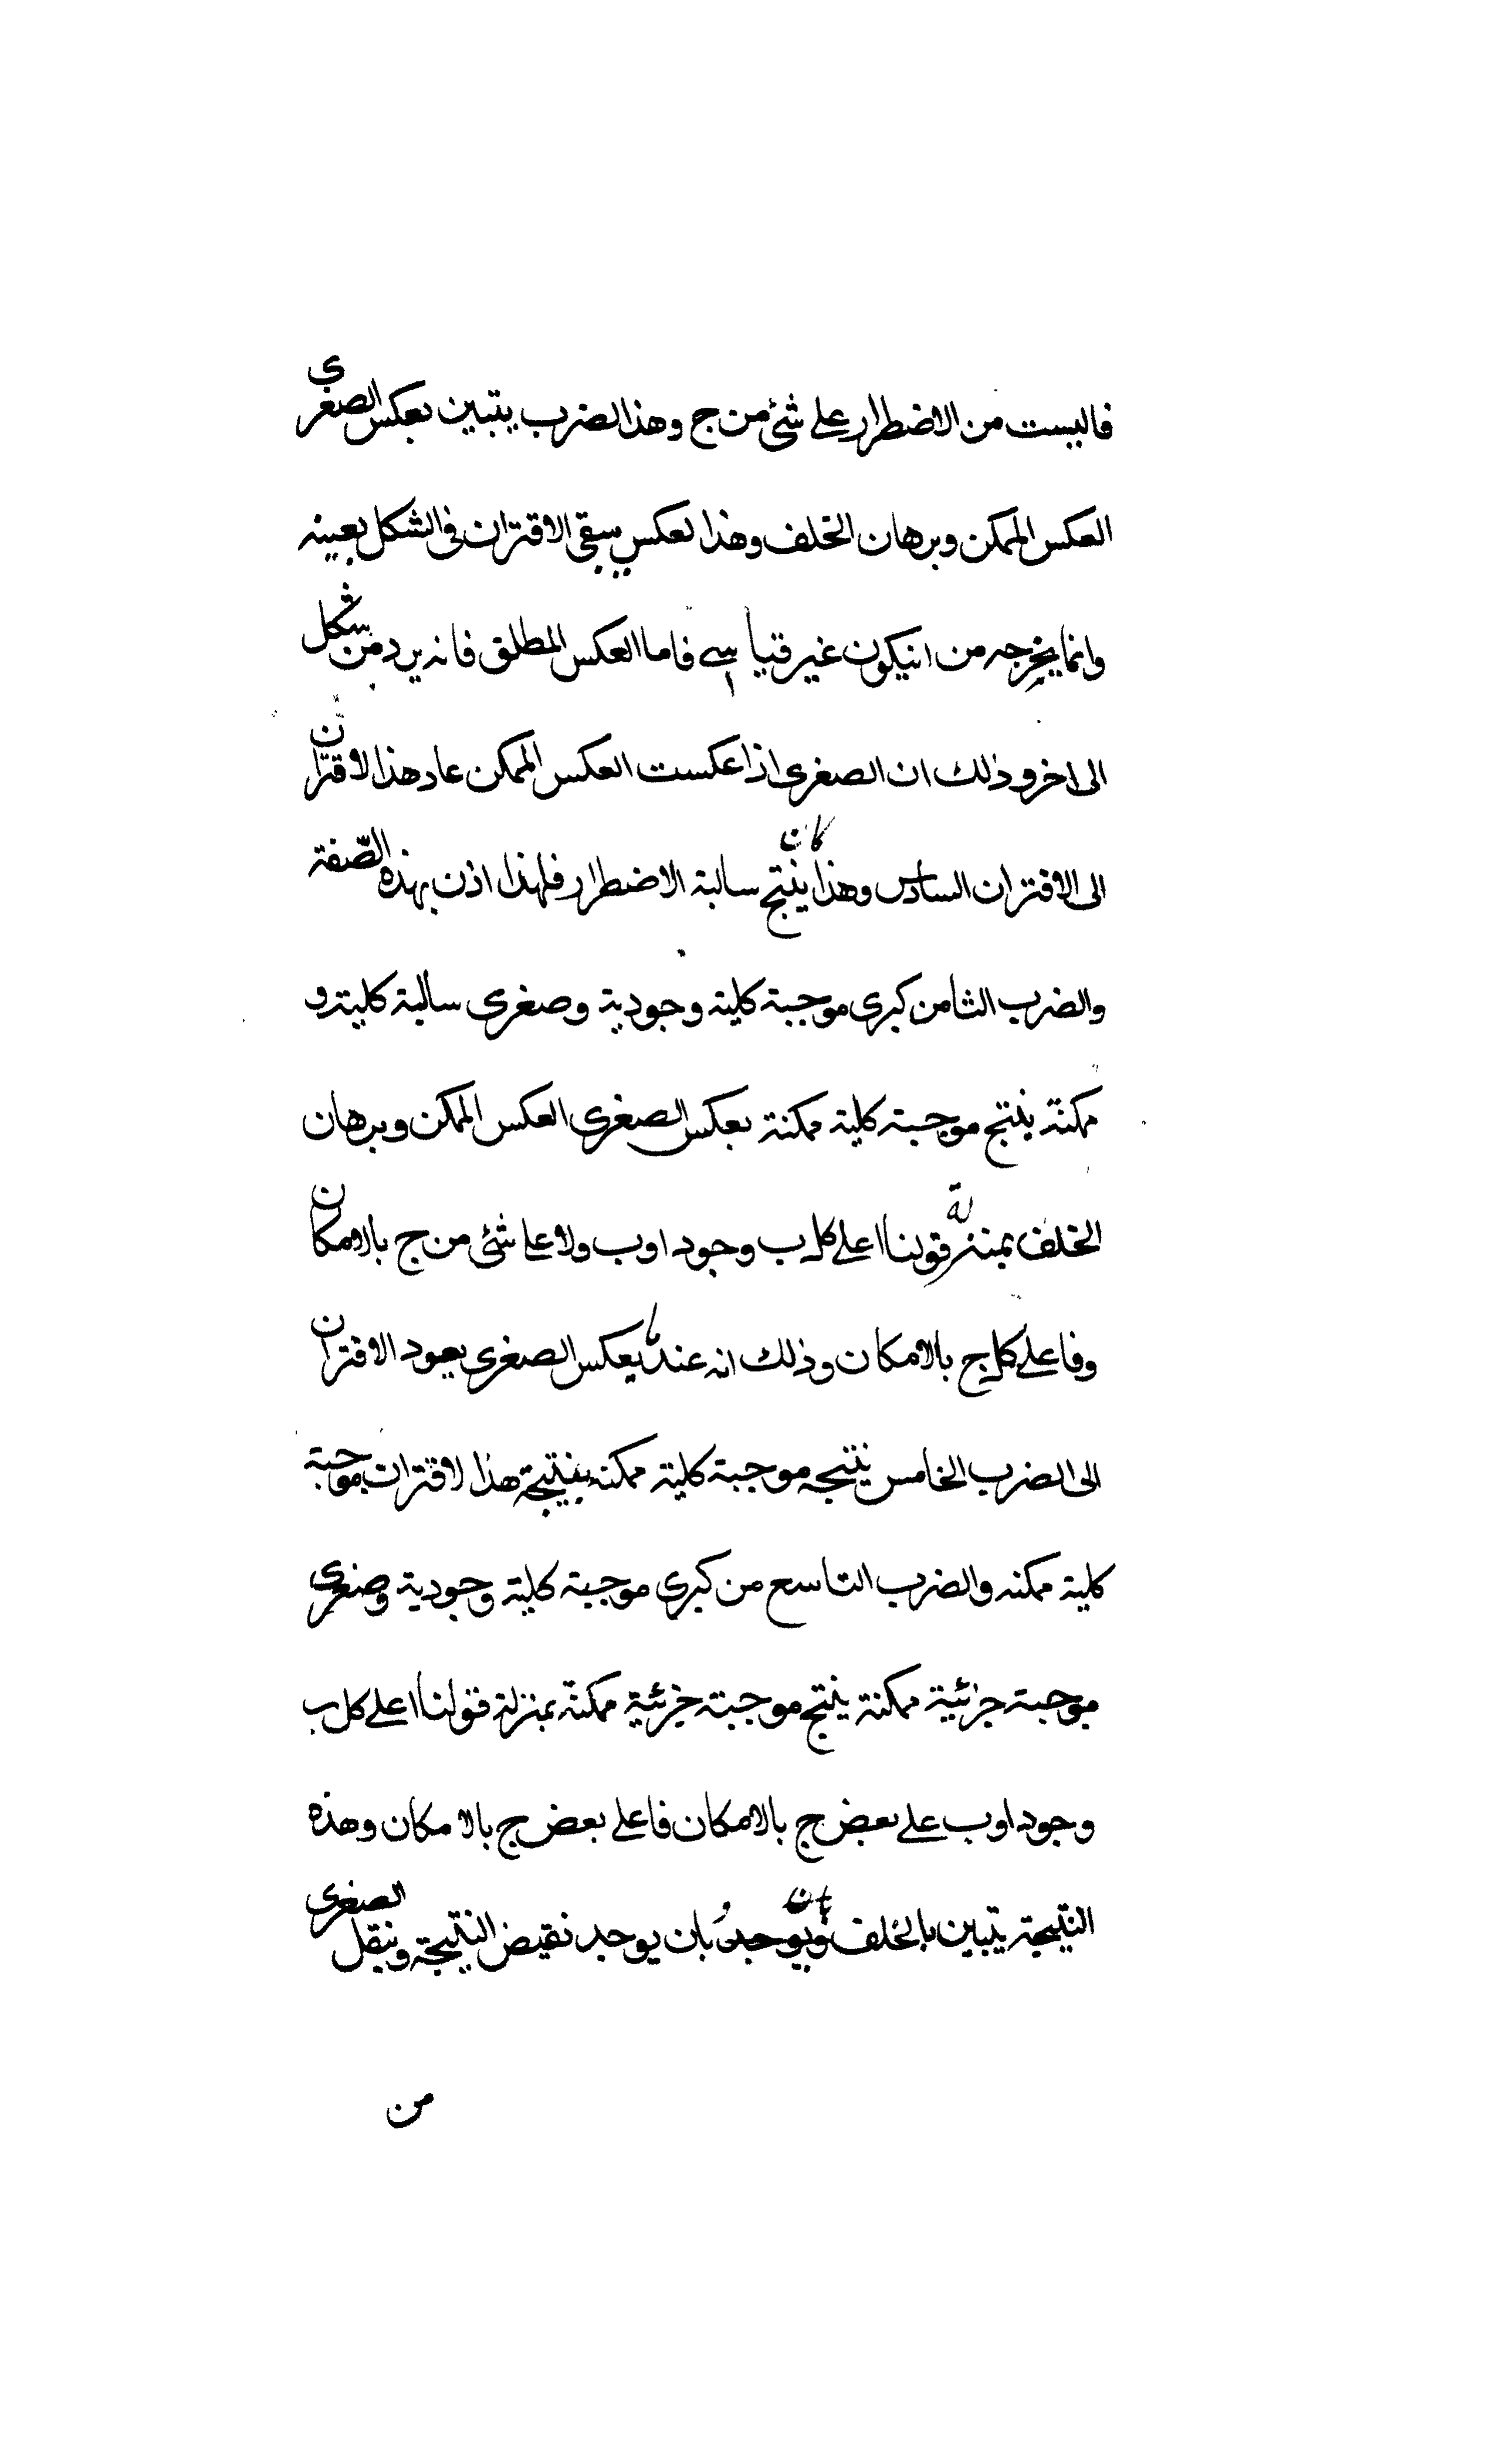 فاليست من الاضطرار على شئ من ج وهذا الضرب يتبين بعكس الصغرى
العكس الممكن وبرهان الخلف وهذا لعكس يبقى الاقتران فى الشكل بعينه
وانما يخرجه من انيكون غير قياسى فاما العكس المطلق فانه يرد من شكل
الى اخر وذلك ان الصغرى اذا عكست العكس الممكن عاد هذا الاقتران
الى الاقتران السادس وهذا كان ينتج سالبة الاضطرار فلهذا اذن بهذه الصّفة
والضرب الثامن كبرى موجبة كلية وجودية وصغرى سالبة كلية و
ممكنة ينتج موجبة كلية ممكنة بعكس الصغرى العكس الممكن وبرهان
الخلف بمنزلة قولنا ا على كل ب وجودا وب ولا عا شئ من ج بالامكان
وفا على كل ج بالامكان وذلك انه عندما يعكس الصغرى يعود الاقتران
الى الضرب الخامس ينتجه موجبة كلية ممكنه بنتيجة هذا لاقتران موجبة
كلية ممكنه والضرب التاسع من كبرى موجبة كلية وجودية وصغرى
موجبة جزئية ممكنة ينتج موجبة جزئية ممكنة بمنزلة قولنا ا على كل ب
وجودا وب على بعض ج بالامكان فا على بعض ج بالامكان وهذه
النتيجة يتبين بالخلف بان يوجد نقيض النتيجة وينقل الصغرى
من